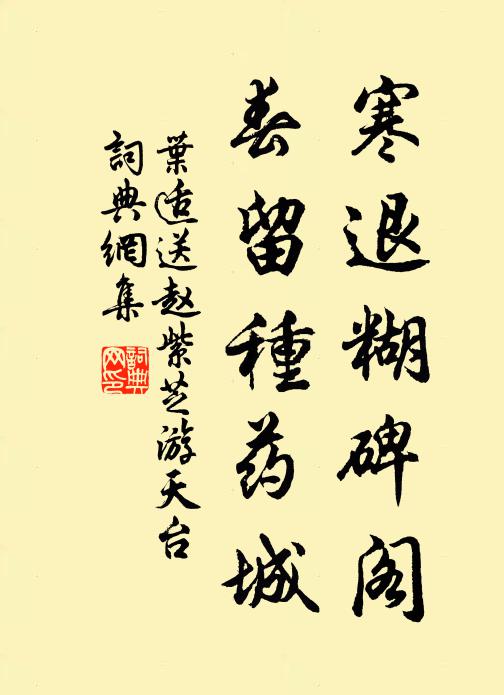 寒退糊碑阁
春留種药城
葉适送赵紫芝游天台
詞典網集
詞典网印